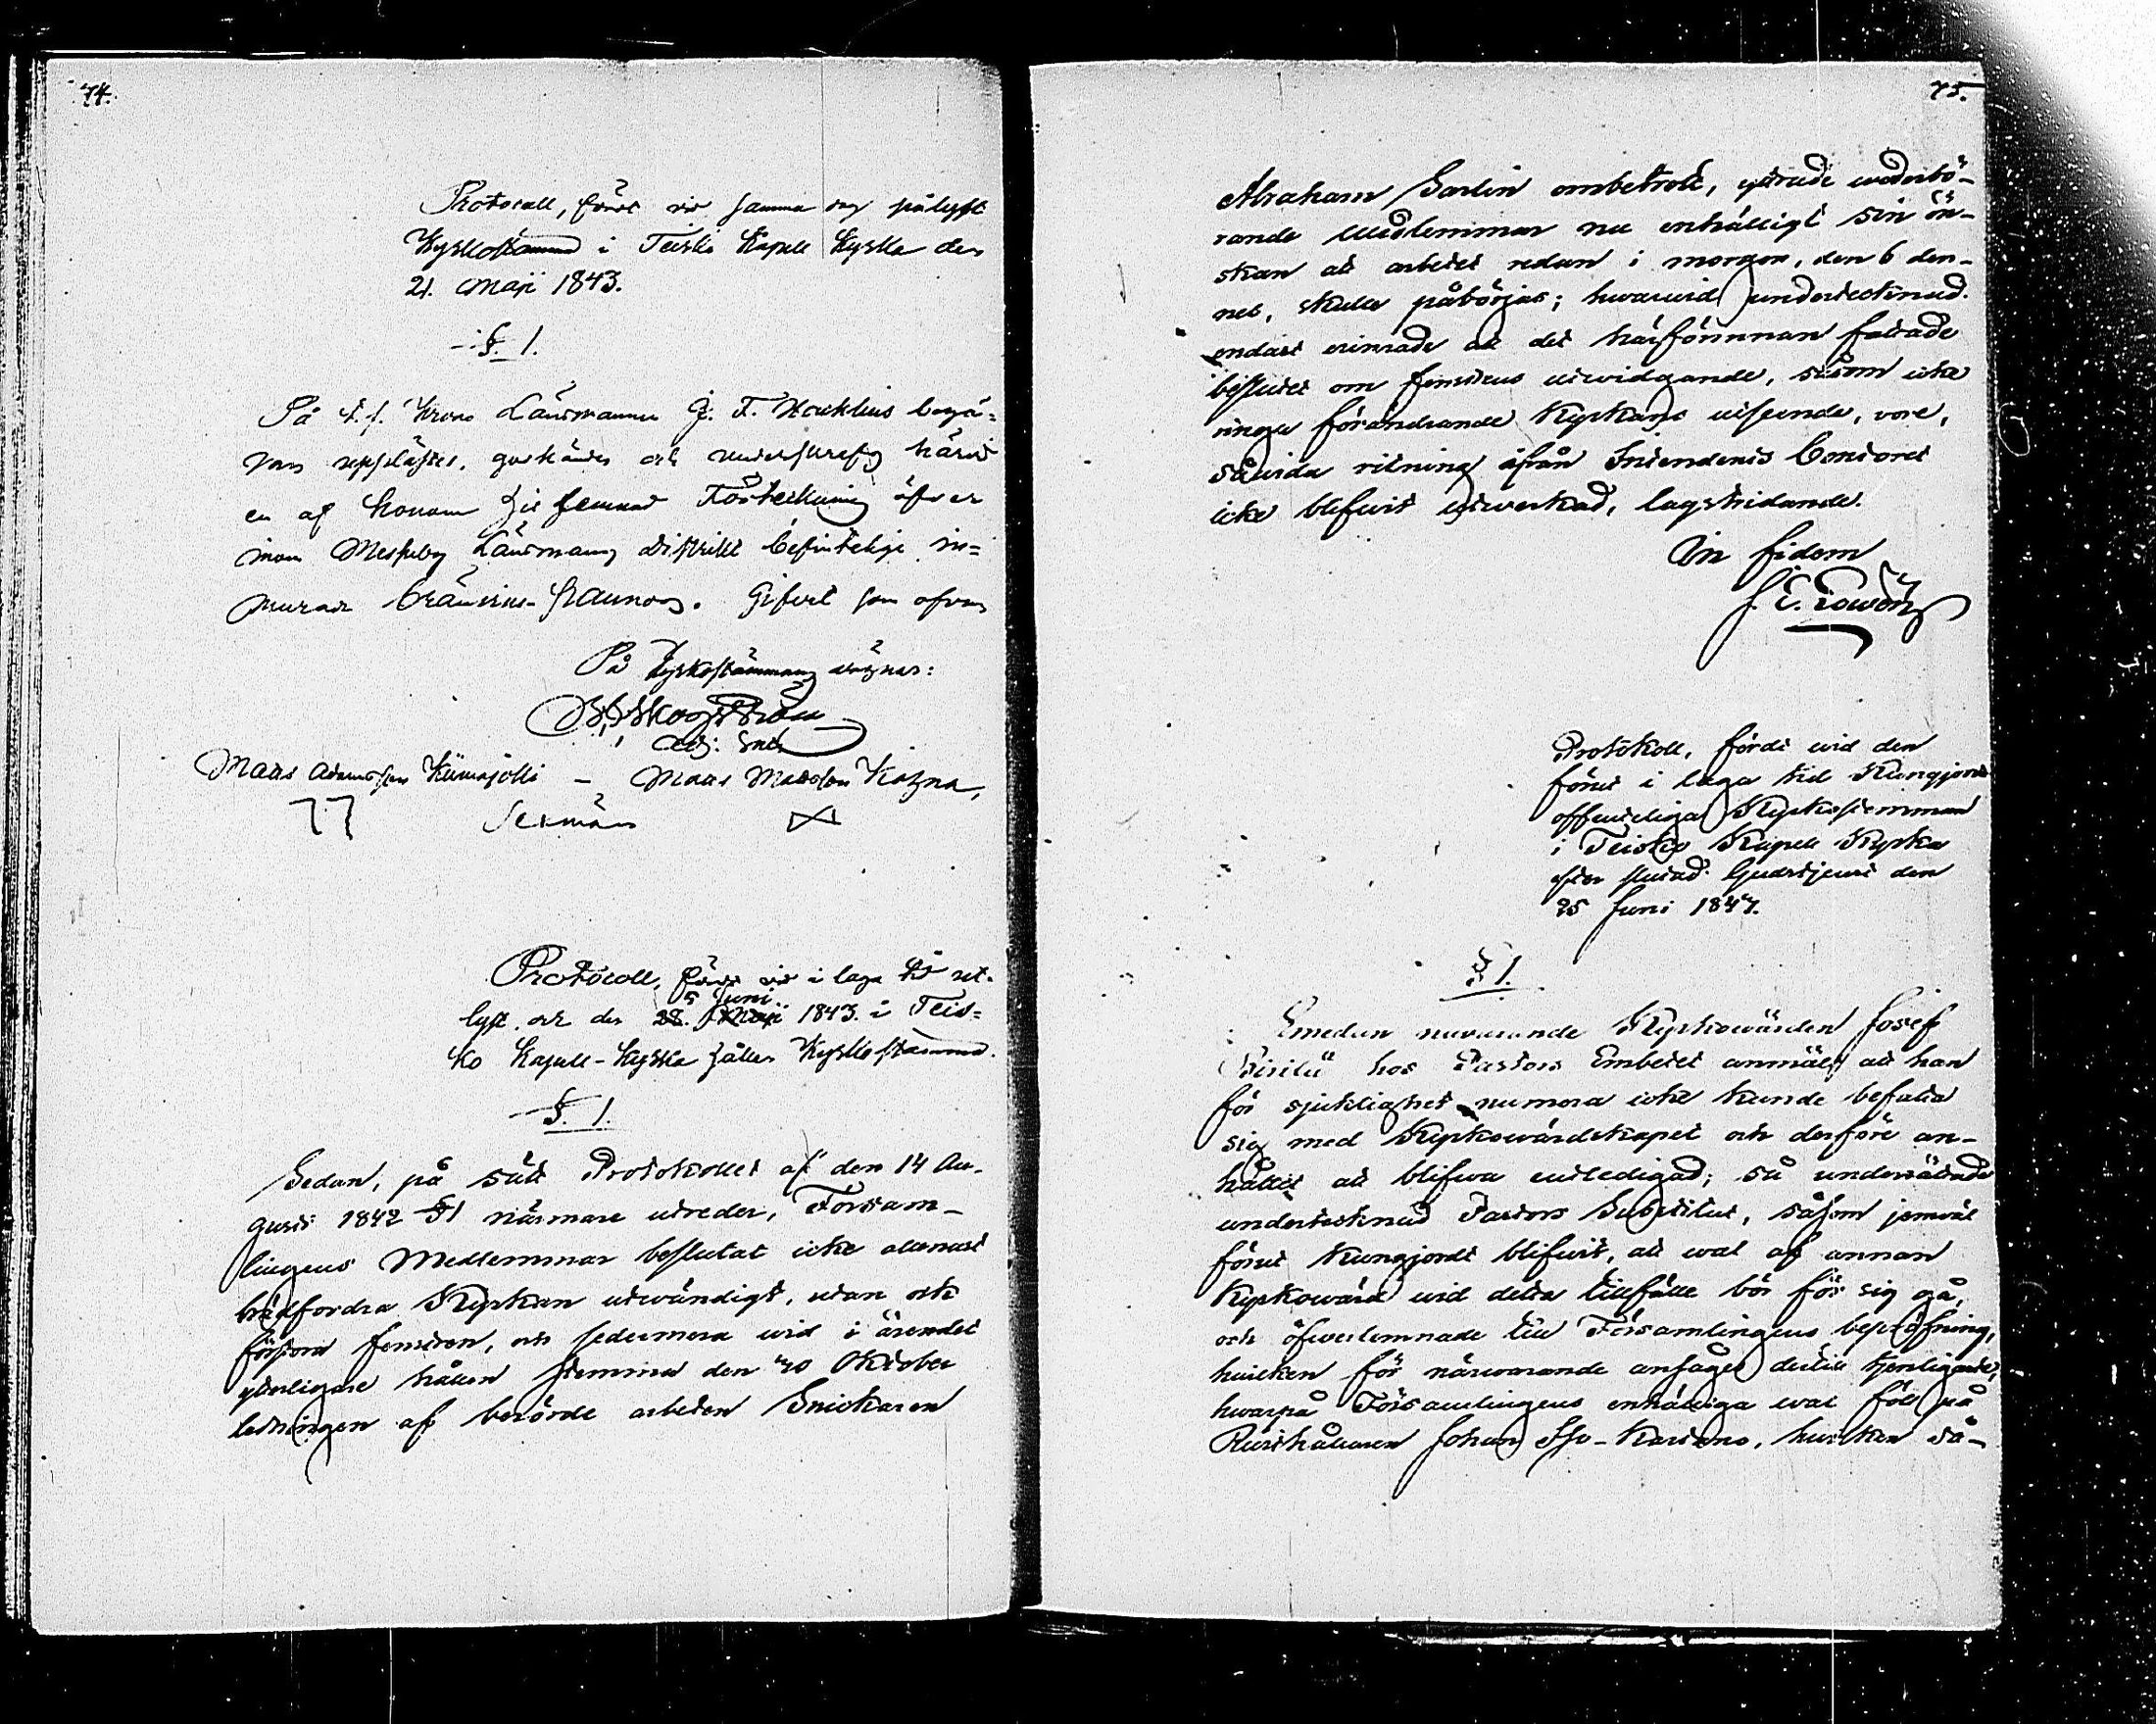 74.
Protocoll, fördt vid samma dag pålyst
Kyrkostämma i Teisko Kapell Kyrka den
21. Maji 1843.
§. 1.
På t. f. Krono Länsmannen G. F. begä-
ran upplästes, godkändes och underskrefs härvid
en af honom Förteckning öfver
inom Messuby Länsmans distrikt befintelige in-
murade brännvins-pannor. Gifvet som ofvan
På Kyrkostämmans vägnar:
Skogström
adj:
Matts Adamsson – Matts Mattsson
Sexmän
Protocoll, fördt vid i laga tid ut-
5 Juni
lyst och den 28. Maji 1843. i Teis-
ko Kapell-Kyrka hållen Kyrkostämma.
§. 1.
Sedan, på sätt Protokollet af den 14 Au-
gusti 1842 §1 närmare utreder, Församm-
lingens Medlemmar beslutat icke allenast
brädfordra Kyrkan utvändigt, utan ock
förstora fenstren, och sedermera wid i ärendet
ytterligare hållen stemma den 30 Oktober
ledningen af berörde arbeten Snickaren
75.
Abraham Sarlin ombetrott, yttrade wederbö-
rande Medlemmar nu enhälligt sin ön-
skan att arbetet redan i morgon, den 6 den-
nes, skulle påbörjas; hwarwid undertecknad
endast erinrade att det härförinnan fattade
beslutet om fenstrens utwidgande, såsom icke
ringa förändrande Kyrkans utseende, vore,
såwida ritning ifrån Intendents Contoret
icke blifwit utwerkad, lagstridande.
In fidem
Protokoll, fördt wid den
förut i laga tid Kungjorde
offentliga Kyrkostemman
i Teisko Kapell Kyrka
efter slutad Gudstjenst den
25 Juni 1847.
§ 1.
Emedan nuvarande Kyrkowärden Josef
hos Pastors Embetet anmält att han
för sjuklighet numera icke kunde befatta
sig med Kyrkowärdskapet och derföre an-
hållit att blifwa entledigad; så underrättade
undertecknad Pastors Substitut, såsom jemwäl
förut Kungjordt blifwit, att wal af annan
Kyrkowärd wid detta tillfälle bör för sig gå,
och öfverlemnade till Församlingens bepröfning,
hwilken för närvarande ansåges dertill tjenligast,
hwarpå Församlingens enhälliga wal föll på
Rusthållaren Johan Iso-Kartano, hwilken så-